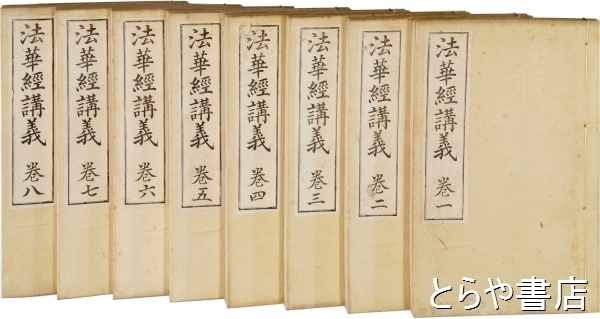 法華經講義 卷一
法華經講義 卷二
法華經講義 卷三
法華經講義 卷四
法華經講義 卷五
法華經講義 卷六
法華經講義 卷七
法華經講義 卷八
とらや書店